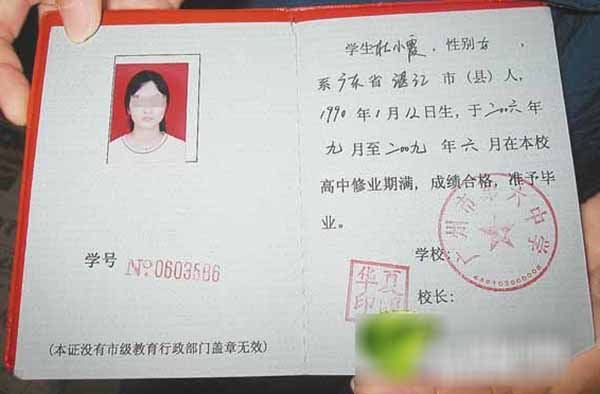 学号 №0603586
(本证没有市级教育行政部门盖章无效)
学生杜小霞，性别女，
系广东省湛江市(县)人，
1990年1月12日生，于二〇〇六年
九月至二〇〇九年六月在本校
高中修业期满，成绩合格，准予毕
业。
学校：
广州市第六中学
校长：
华夏
印